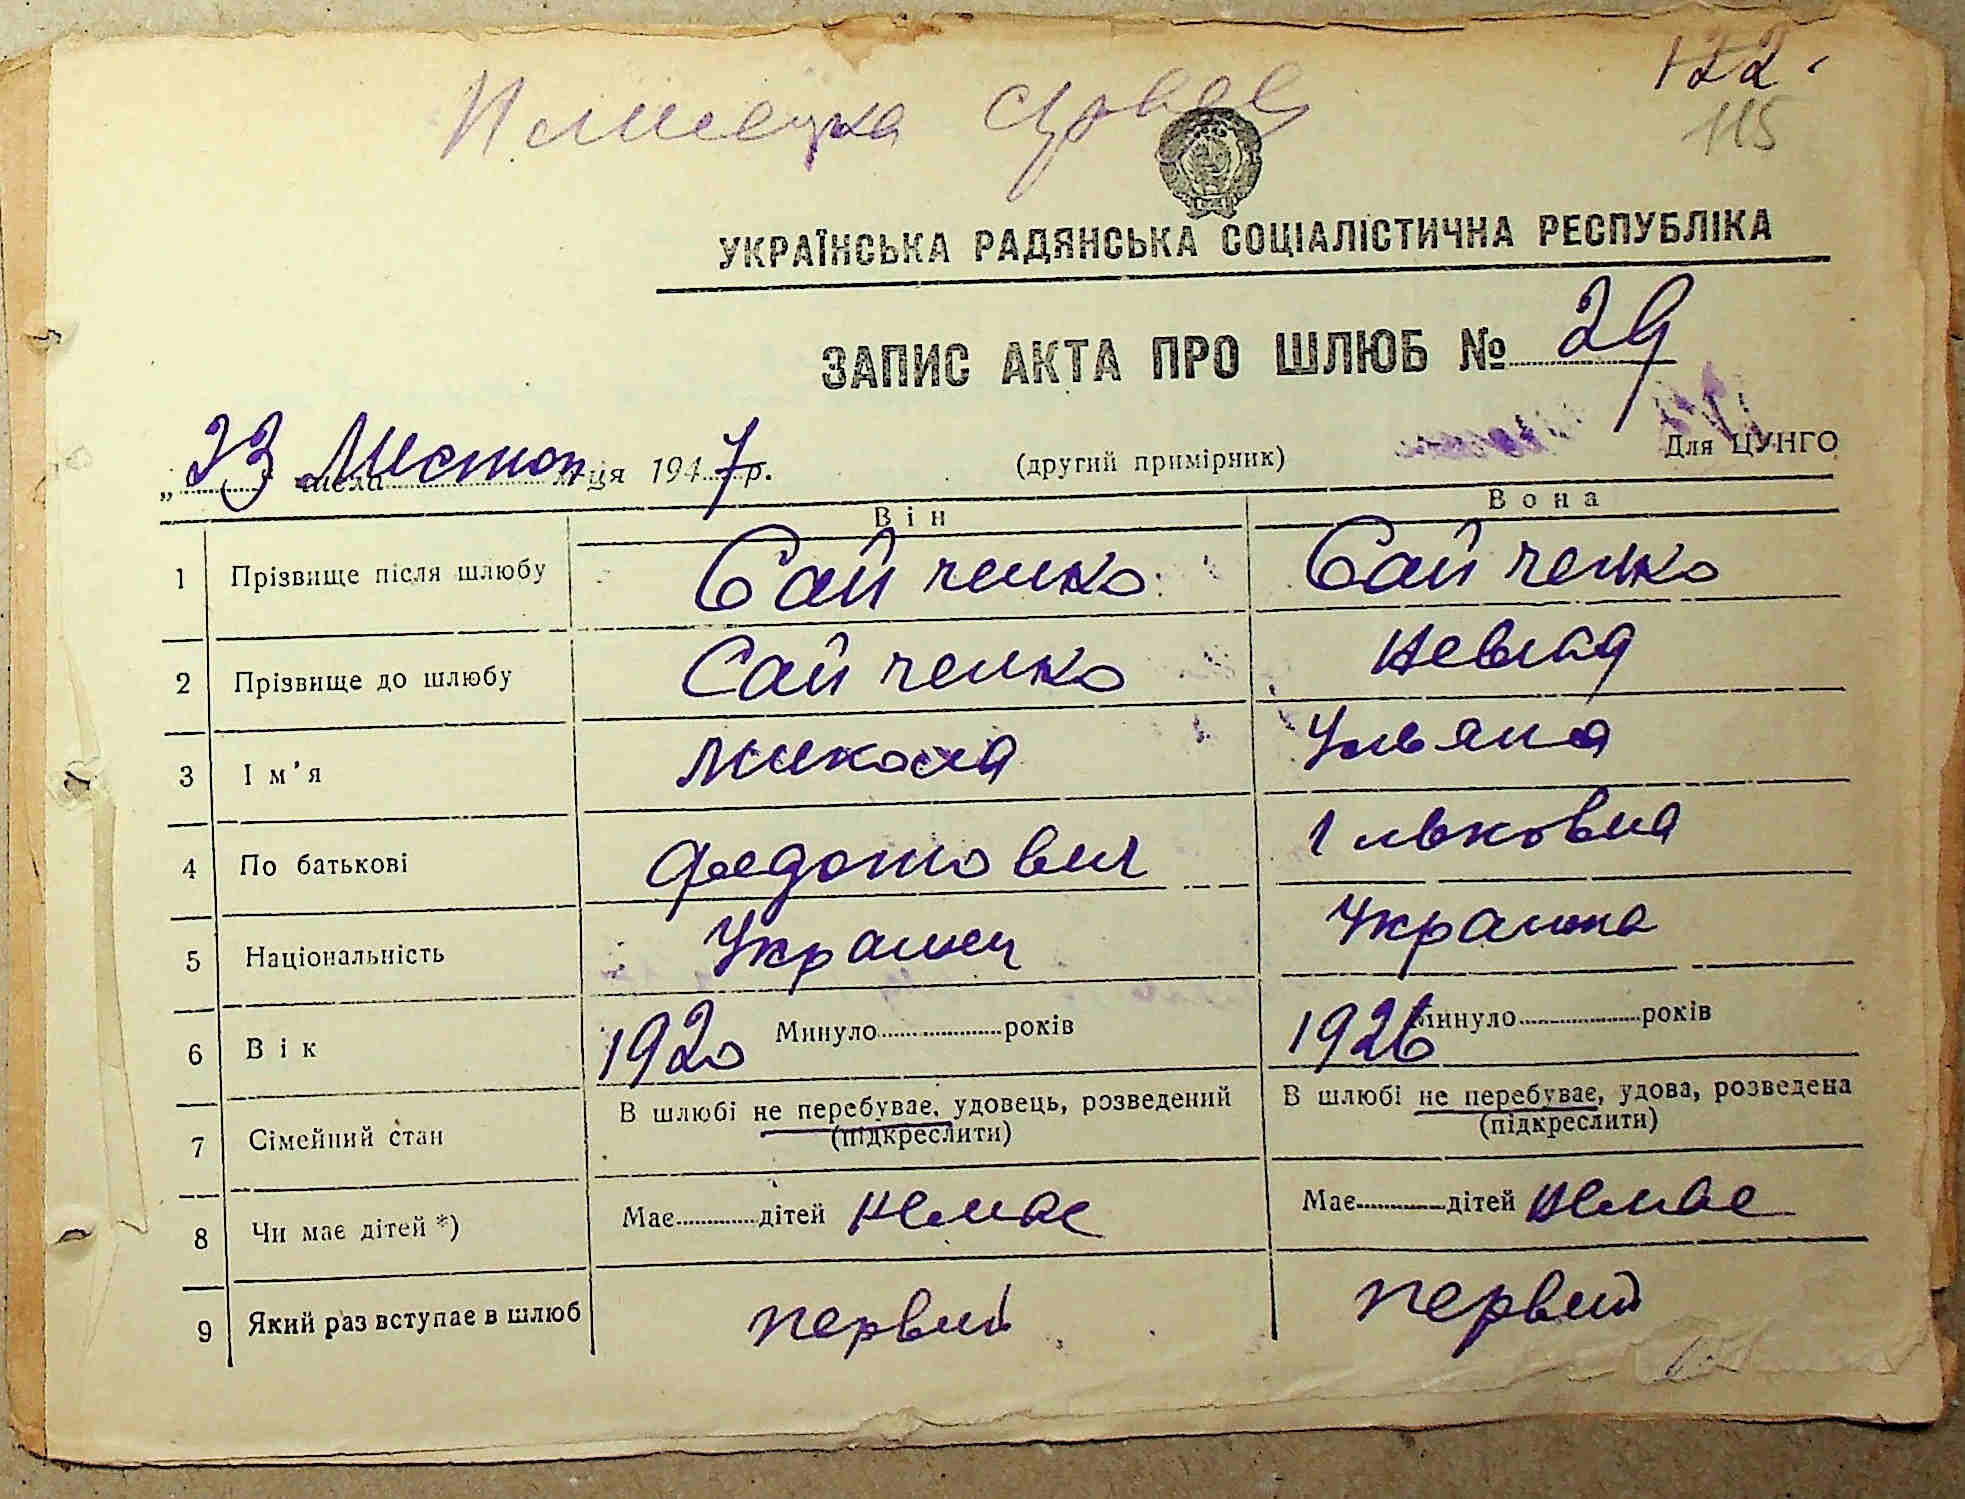 122.
115
УКРАЇНСЬКА РАДЯНСЬКА СОЦІАЛІСТИЧНА РЕСПУБЛІКА
ЗАПИС АКТА ПРО ШЛЮБ № 29
„23 числа Листоп м-ця 1947 р. (другий примірник) Для ЦУНГО
Він Вона
1 Прізвище після шлюбу Сайченко Сайченко
2 Прізвище до шлюбу Сайченко Невлад
3 Ім’я Микола Уляьна
4 По батькові Федотович Ільковна
5 Національність Украинец Украинка
6 Вік 1920 Минуло років 1926 Минуло років
7 Сімейний стан В шлюбі не перебуває, удовець, розведений (підкреслити) В шлюбі не перебуває, удова, розведена (підкреслити)
8 Чи має дітей *) Має дітей немає Має дітей немає
9 Який раз вступає в шлюб первий первий